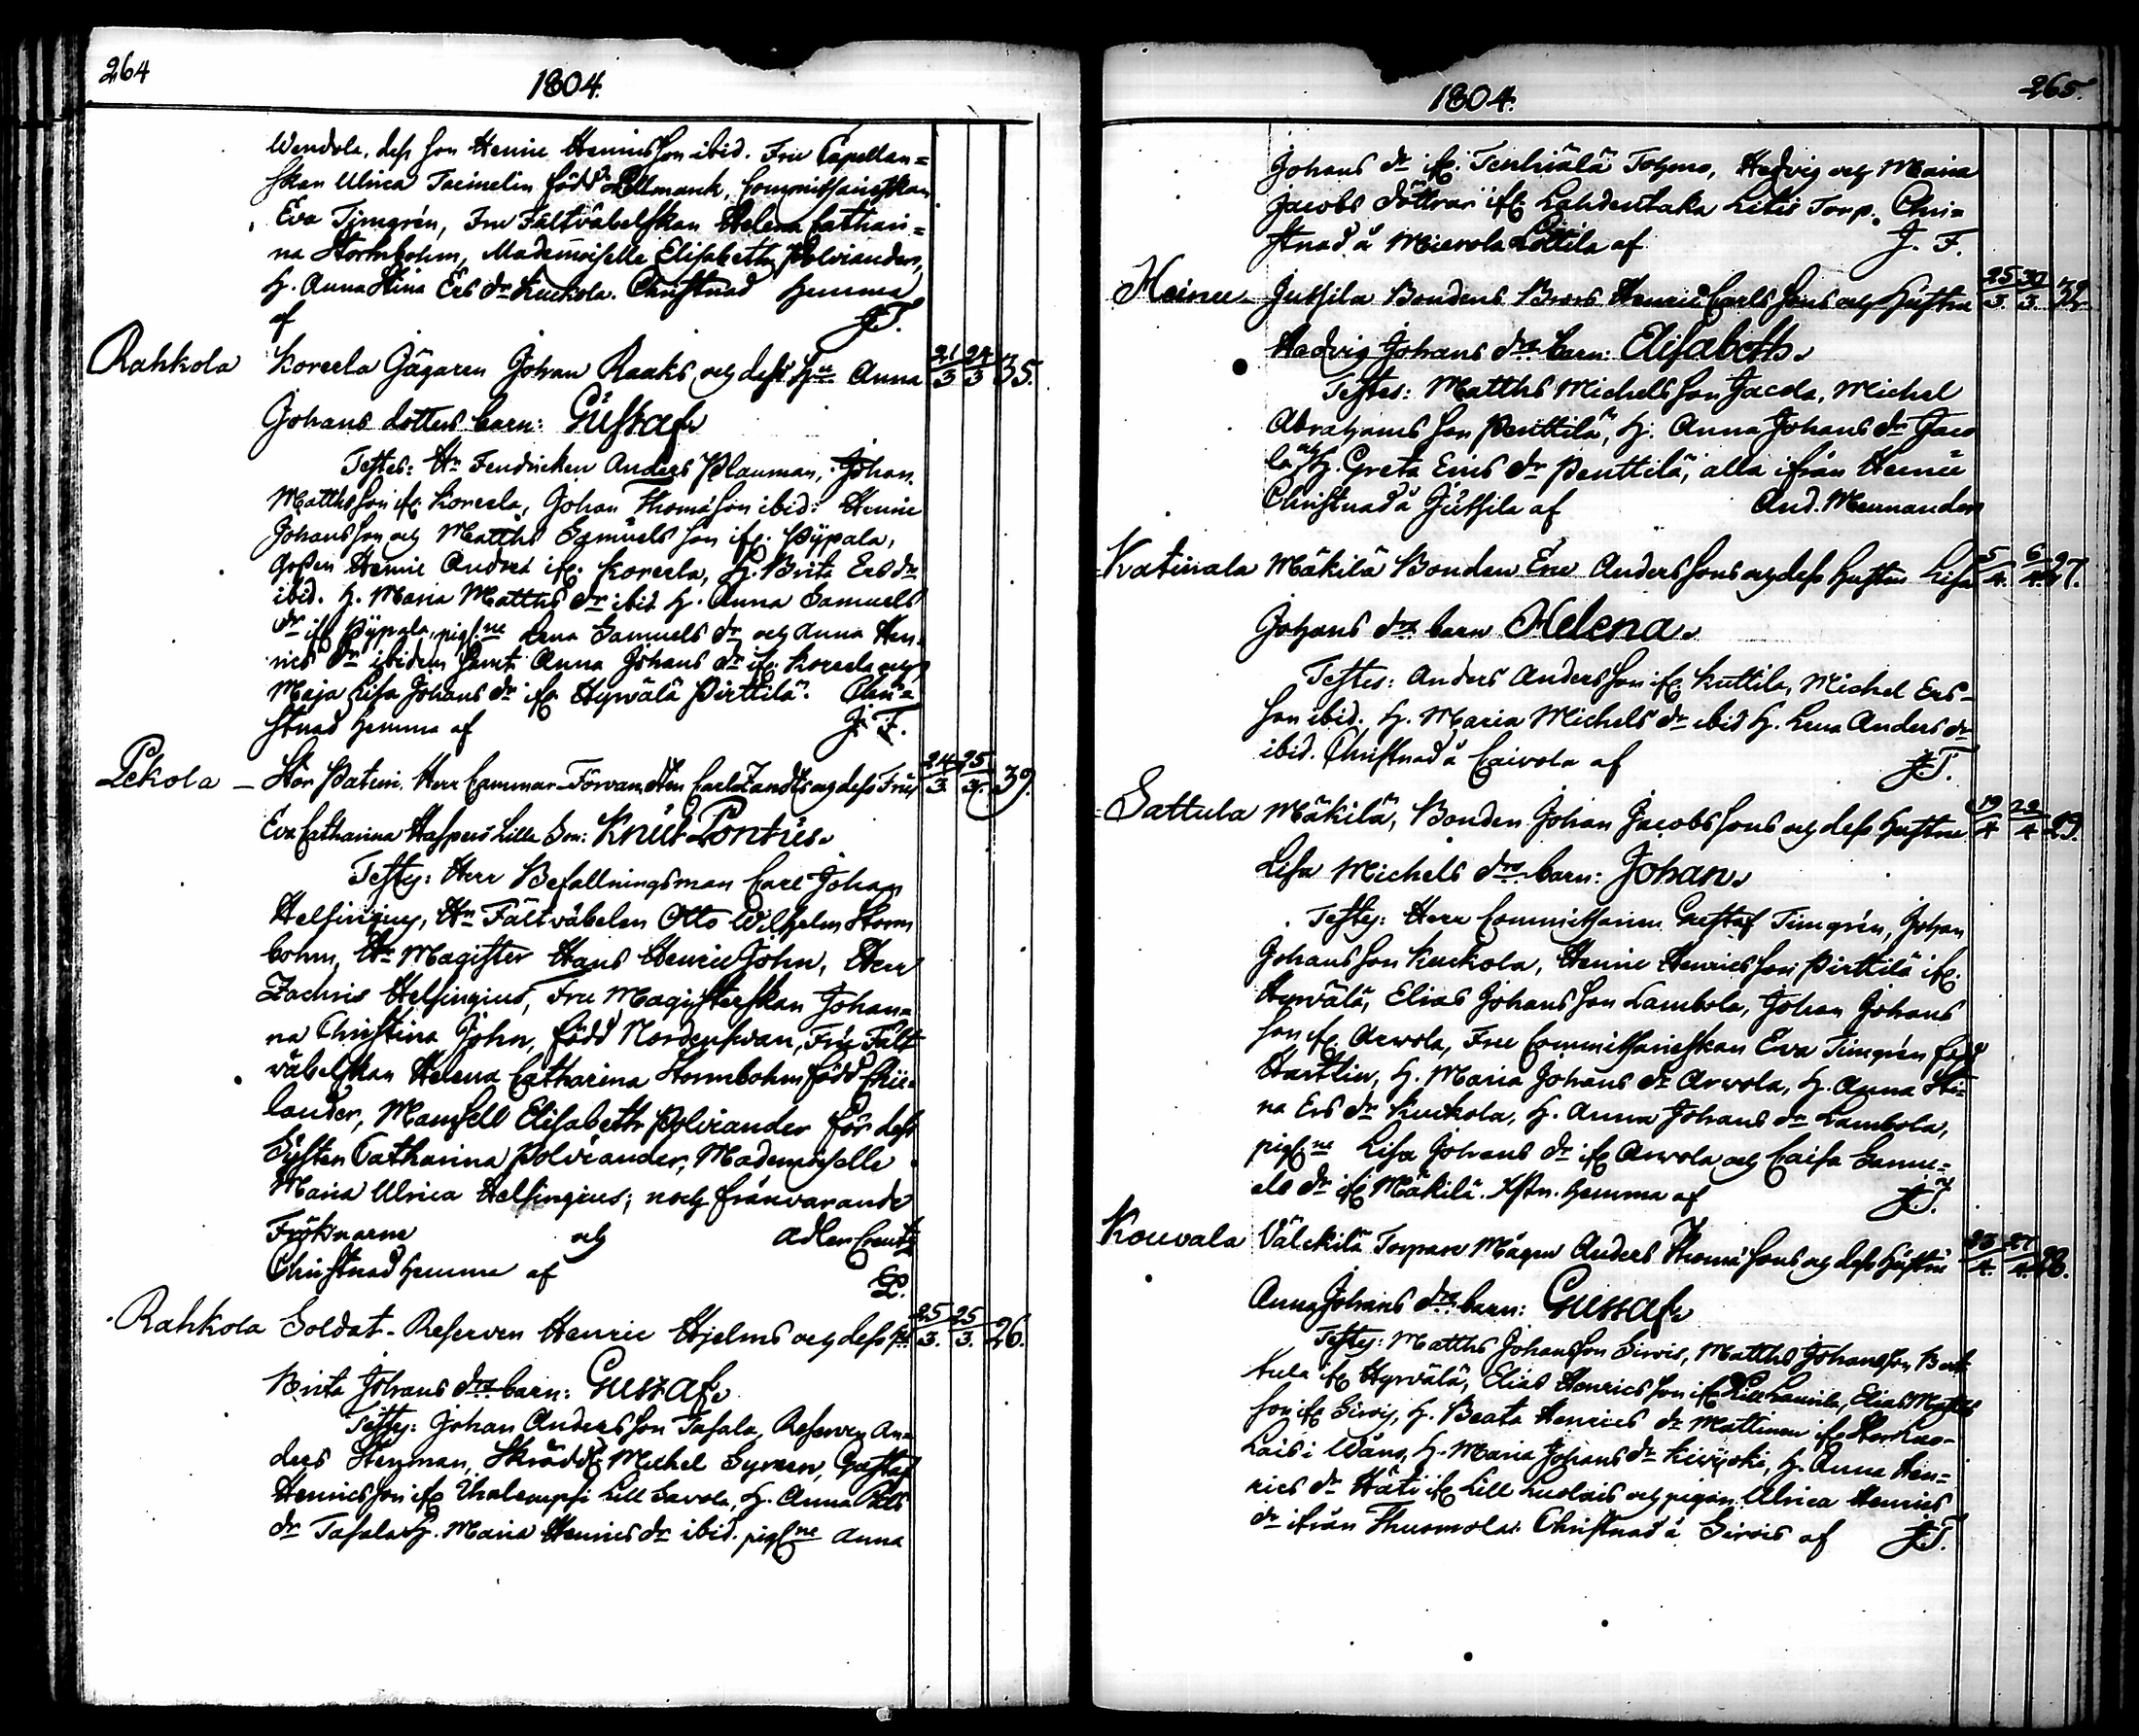 264
1804.
Wendola, dess son Henric Henricsson ibid. Fru Capellan=
skan Ulrica född Commissarieskan
Eva Timgrén, Fru Fältväbelskan Helena Cathari=
na Stormbohm, Mademoiselle Elisabeth Polviander,
H. Anna Stina Ers dr Kuckola. Christnad hemma
af J.T.
Rahkola Koreela Jägaren Johan Raaks och dess Hu Anna 21/3 24/3 35.
Johans dotters barn: Gustaf.
Testes: Hr Fendricken Anders Plauman, Johan
Matthsson ifr. Koreela, Johan Thomasson ibid. Henric
Johansson och Matths Samuelsson ifr. Pÿpala,
Gossen Henric Anders ifr. Koreela, H. Brita Ers dr
ibid. H. Maria Matths dr ibid H. Anna Samuels
dr ifr Pÿpala, pigne Lena Samuels dr och Anna Hen=
rics dr ibidem samt Anna Johans dr ifr. Koreela och
Maja Lisa Johans dr ifr Hyrvälä Pirttilä. Chri=
stnad hemma af J.T.
Lekola – Stor Patrin. Herr Cammar-Förvandten Carl Zandts och dess Fru 24/3 25/3 39.
Eva Catharina Haspers Lilla Son: Knut Pontus.
Testes: Herr Befallningsman Carl Johan
Helsingius, Hr Fältväbelen Otto Wilhelm Storm
bohm, Hr Magister Hans Henric John, Herr
Zachris Helsingius, Fru Magisterskan Johan=
na Christina John, född Nordensvan, Fru Fält
väbelskan Helena Catharina Stormbohm född
lander, Mamsell Elisabeth Polviander för dess
Syster Catharina Polviander, Mademoiselle
Maria Ulrica Helsingius; och frånvarande
Fröknarne och Adlercreutz
Christnad hemma af
Rahkola Soldat-Reserven Henric Hjelms och dess Hu 25/3. 25/3. 26.
Brita Johans drs barn: Gustaf.
Testes: Johan Andersson Tafala, Reserven An=
ders Stenman, Skrädd. Michel Syreen, Gustaf
Henricsson ifr Lill Savola, H. Anna
dr Tafala H. Maria Henrics dr ibid. pigne Anna
1804.
265.
Johans dr ifr. Hedvig och Maria
Jacobs döttrar ifr. Lahdentaka Torp. Chri=
stnad å Mierola Lottila af J.T.
Heinu – Jussila Bondens Brors Henric Carls sons och hustru 25/3. 30/3. 32.
Hedvig Johans drs barn: Elisabeth.
Testes: Matths Michelsson Jacola, Michel
Abrahamsson Penttilä, H. Anna Johans dr Jaco
la och H. Greta Erics dr Penttilä, alla ifrån Heinu
Christnad å Jussila af And. Mennander
Katinala Mäkilä Bonden Eric Anderssons och dess hustru Lisa 5/4. 6/4. 27.
Johans drs barn Helena.
Testes: Anders Andersson ifr Kuttila, Michel Ers-
son ibid. H. Maria Michels dr ibid H. Lena Anders dr
ibid. Christnad å Caivola af J.T.
Sattula Mäkilä, Bonden Johan Jacobssons och dess hustru 19/4 22/4 29.
Lisa Michels drs barn: Johan.
Testes: Herr Commissarien Gustaf Timgrén, Johan
Johansson Kuckola, Henric Henricsson Pirttilä ifr.
Hyrvälä, Elias Johansson Lambola, Johan Johans
son ifr. Arvola, Fru Commissarieskan Eva Timgrén född
Hartlin, H. Maria Johans dr Arvola, H. Anna Sti=
na Ers dr Kuckola, H. Anna Johans dr Lambola,
pigne Lisa Johans dr ifr Arvola och Caisa Samu=
els dr ifr Mäkilä. Xstn. hemma af J.T.
Kouvala Välckilä Torpare Mågen Anders Thomæ sons och dess hustru 23/4. 27/4. 28.
Anna Johans drs barn: Gustaf.
Testes: Matths Johansson Sirvis, Matths Johansson
ifr Hyrvälä, Elias Henricsson ifr Elias Matths
son ifr Sirvis, H. Beata Henrics dr Mattinen ifr Stor Luo-
lais i Wåno, H. Maria Johans dr H. Anna Hen=
rics dr Häti ifr Lill Luolais och pigan Ulrica Henrics
dr ifrån Thuomola. Christnad å Sirvis af J.T.